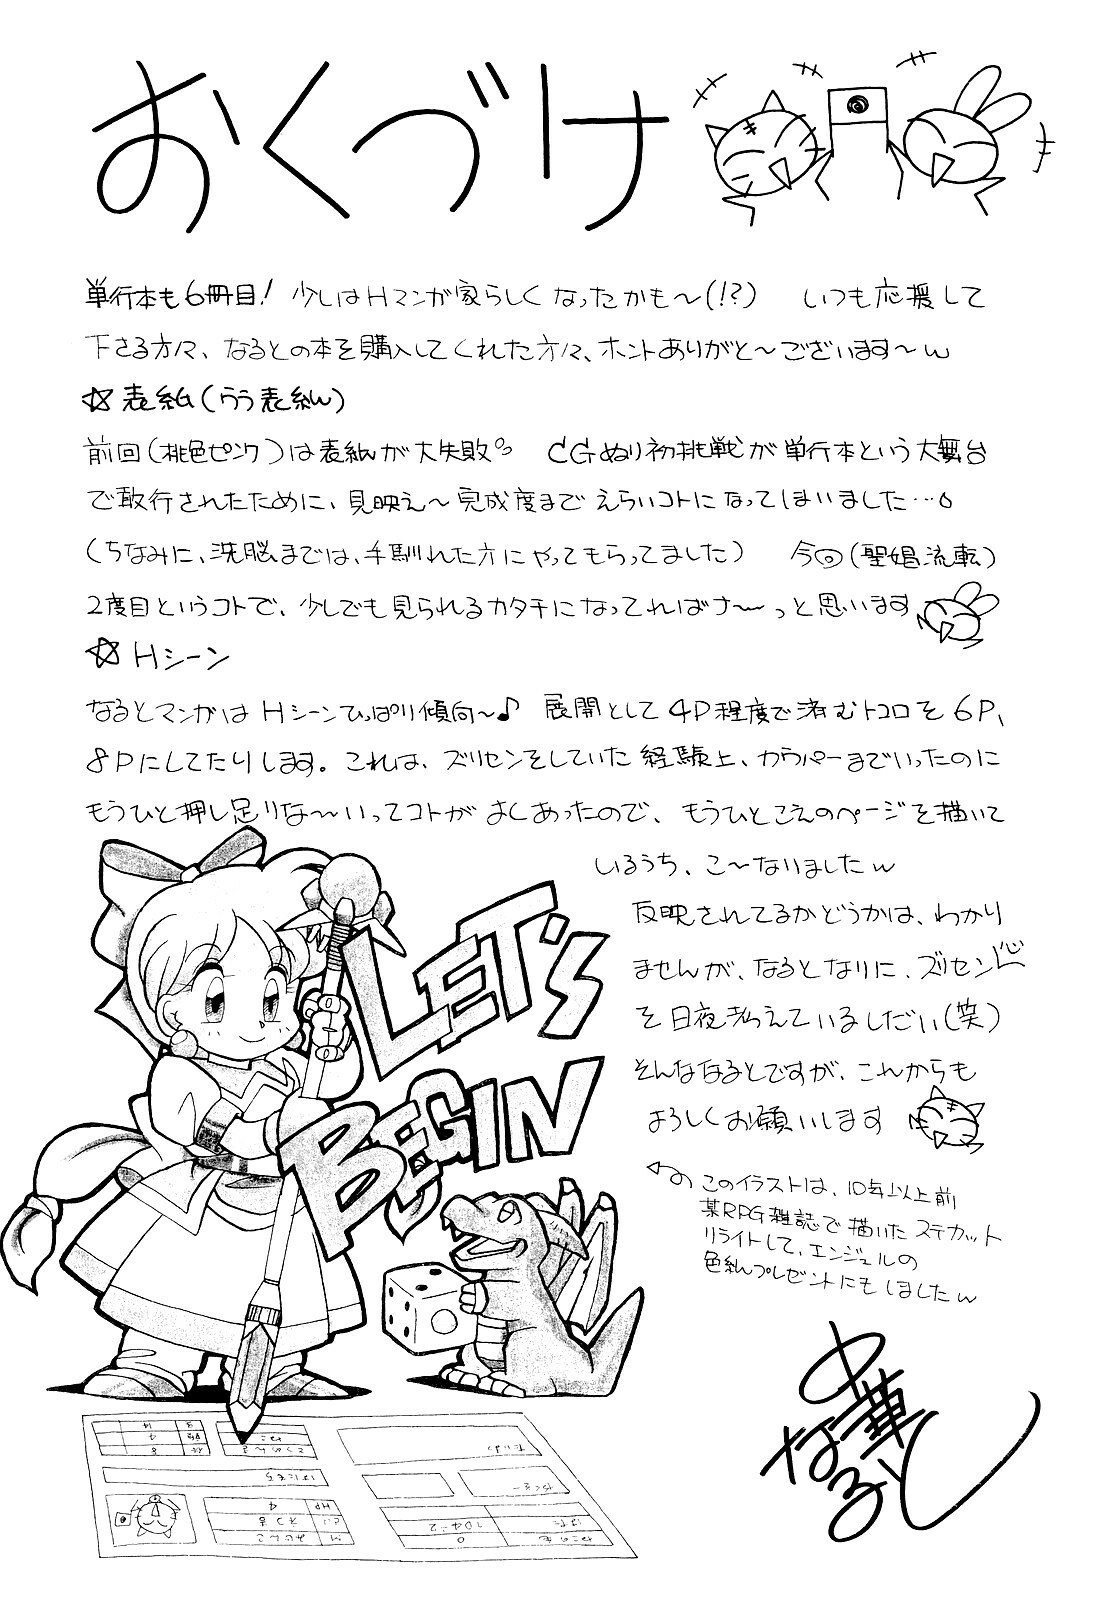 おくづけ
単行本も6冊目! 少しはHマンガ家らしくなったかも〜(!?) いつも応援して
下さる方々、なるとの本を購入してくれた方々、ホントありがと〜ございます〜w
☆表紙(うう表紙)
前回(桃色ピンク)は表紙が大失敗 CGぬり初挑戦が単行本という大舞台
で敢行されたために、見映え〜完成度までえらいコトになってしまいました…
(ちなみに、洗脳までは、手馴れた方にやってもらってました) 今回(聖娼流転)
2度目というコトで、少しでも見られるカタチになってればナ〜っと思います
☆Hシーン
なるとマンガはHシーンひっぱり傾向〜♪ 展開として4P程度で済むトコロを6P、
8Pにしてたりします。これは、ズリセンをしていた経験上、カウパーまでいったのに
もうひと押し足りな〜いってコトがよくあったので、もうひとこえのページを描いて
いるうち、こ〜なりましたw
反映されてるかどうかは、わかり
ませんが、なるとなりに、ズリセン
を日夜考えているしだい(笑)
そんななるとですが、これからも
よろしくお願いします
このイラストは、10年以上前
某RPG雑誌で描いたステカット
リライトして、エンジェルの
色紙プレゼントにもしましたw
LET'S
BEGIN
中華
なると
HP 4